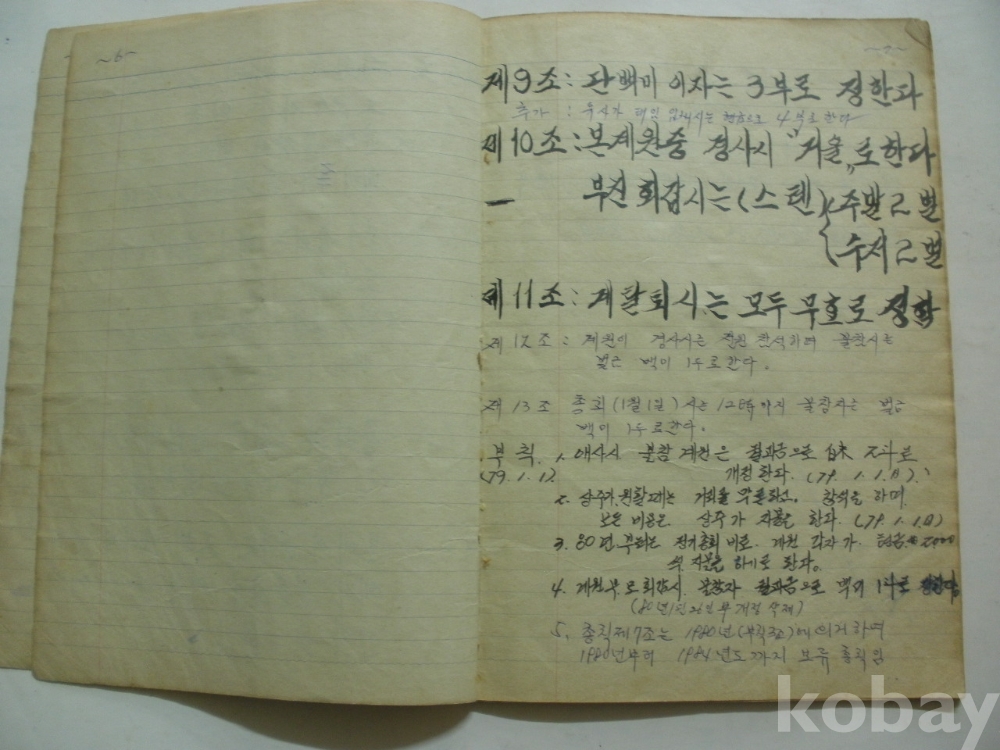 ~6~
~7~
제9조: 판백미 이자는 3부로 정한다
추가 : 4부로 한다
제10조: 본계원중 경사시 "거울"로 한다
부친 회갑시는 (스텐) 주발 2벌
수저 2벌
제11조: 계탈퇴시는 모두 무효로 정함
제12조: 계원이 경사시는 전원 참석하며 불참시는
벌금 백미 1두로 한다.
제13조 총회(1월1일)시는 12時까지 불참자는 벌금
백미 1두로 한다.
부칙. 1. 애사시 불참 계원은 결과금으로 白米 로
(79.1.12 개정한다. (79. 1. 1.日)
2. 상주가 참석을 하며,
비용은 상주가 지불을 한다. (79.1.1.日)
3. 80년 부터는 정기총회 비로. 계원 각자가 2000
지불을 하기로 한다.
4. 계원 부모 회갑시. 불참자 결과금으로 백미 1두로 정한다
5. 총칙제7조는 1980년(부칙3조)에 의거하여
1980년부터 1984년도까지 보류
kobay